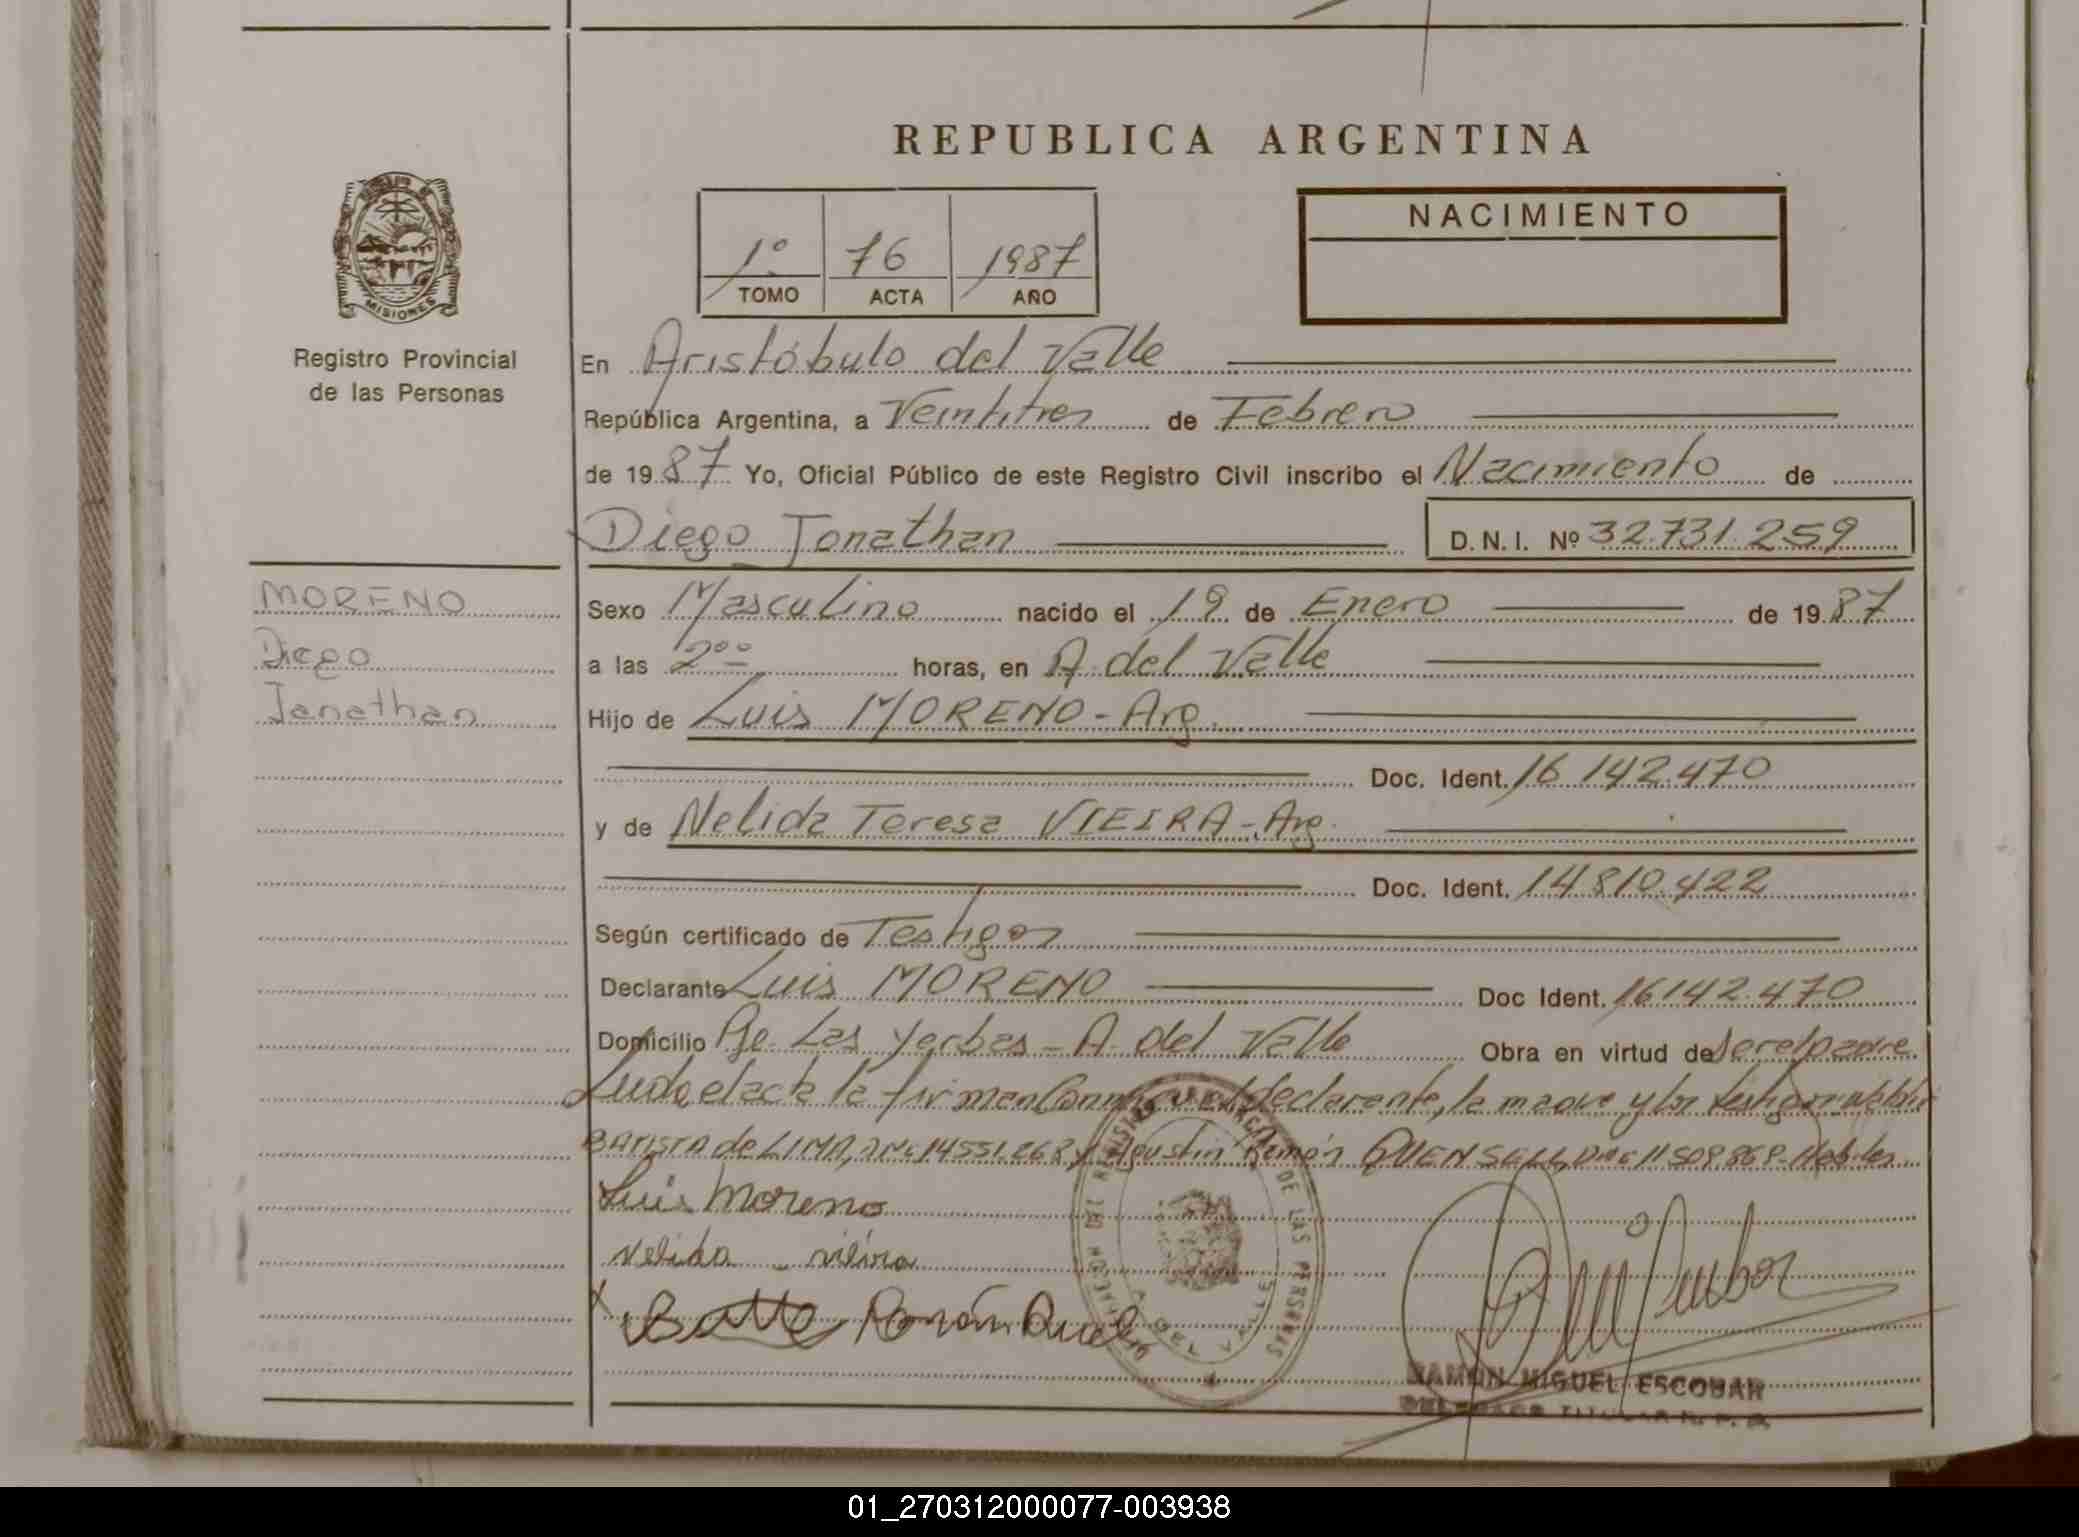 REPUBLICA ARGENTINA
MISIONES
Registro Provincial
de las Personas
1º 76 1987
TOMO ACTA AÑO
NACIMIENTO
En Aristóbulo del Valle
República Argentina, a Veintitres de Febrero
de 1987 Yo, Oficial Público de este Registro Civil inscribo el Nacimiento de
Diego Jonathan D.N.I. Nº 32.731.259
MORENO
Diego
Jonathan
Sexo Masculino nacido el 19 de Enero de 1987
a las 2ºº horas, en A. del Valle
Hijo de Luis MORENO - Arg.
Doc. Ident. 16.142.470
y de Nelida Teresa VIEIRA - Arg.
Doc. Ident. 14.810.422
Según certificado de Testigos
Declarante Luis MORENO Doc Ident. 16142.470
Domicilio Pje. Las Yerbas - A. del Valle Obra en virtud de ser el padre.
Leida el acta la firman Conmigo el declarante, la madre y los testigos
BATISTA de LIMA, 14551.268 y Agustin Ramón QUENSELL, 11509869 Habiles
Luis Moreno
Nelida vieira
Ramón
DE LAS PERSONAS
DEL VALLE
RAMON MIGUEL ESCOBAR
DELEGADO TITULAR R. P. P.
01_270312000077-003938